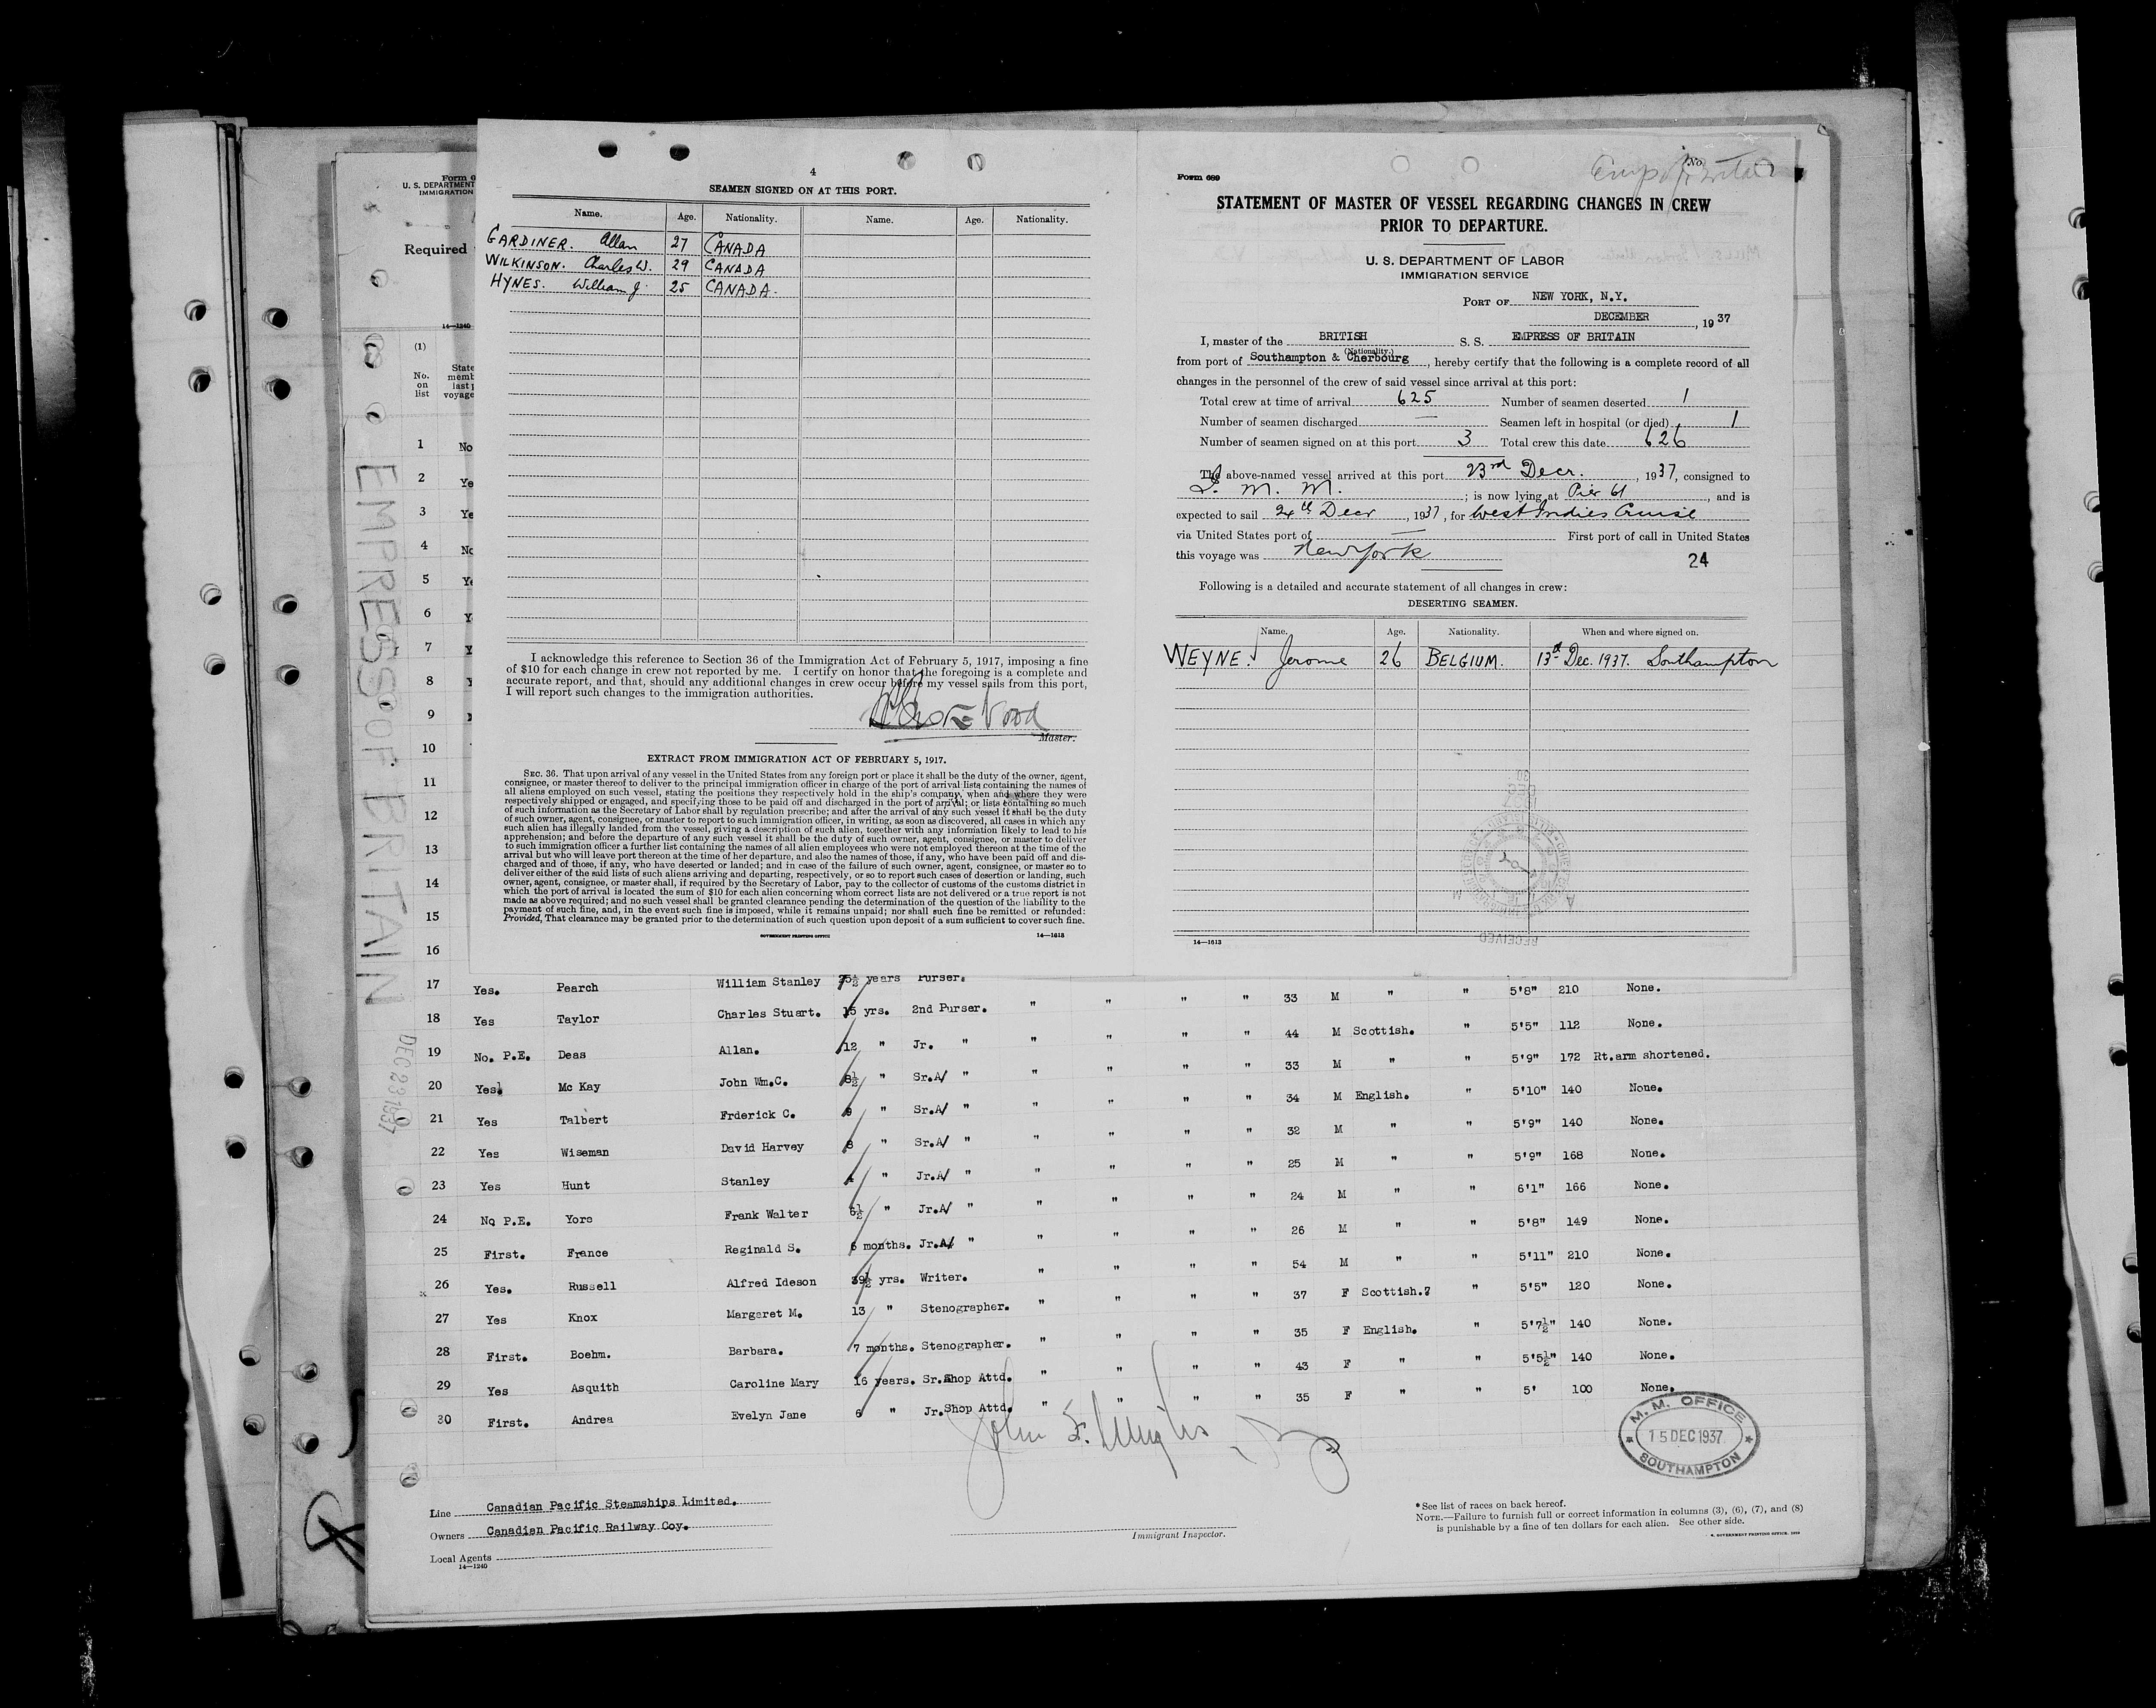 4
SEAMEN SIGNED ON AT THIS PORT.
Name. Age. Nationality. Name. Age. Nationality.
GARDINER. Allan 27 CANADA
WILKINSON. Charles W. 29 CANADA
HYNES. William J. 25 CANADA.
I acknowledge this reference to Section 36 of the Immigration Act of February 5, 1917, imposing a fine
of $10 for each change in crew not reported by me. I certify on honor that the foregoing is a complete and
accurate report, and that, should any additional changes in crew occur before my vessel sails from this port,
I will report such changes to the immigration authorities.
Master.
EXTRACT FROM IMMIGRATION ACT OF FEBRUARY 5, 1917.
SEC. 36. That upon arrival of any vessel in the United States from any foreign port or place it shall be the duty of the owner, agent,
consignee, or master thereof to deliver to the principal immigration officer in charge of the port of arrival lists containing the names of
all aliens employed on such vessel, stating the positions they respectively hold in the ship's company, when and where they were
respectively shipped or engaged, and specifying those to be paid off and discharged in the port of arrival; or lists containing so much
of such information as the Secretary of Labor shall by regulation prescribe; and after the arrival of any such vessel it shall be the duty
of such owner, agent, consignee, or master to report to such immigration officer, in writing, as soon as discovered, all cases in which any
such alien has illegally landed from the vessel, giving a description of such alien, together with any information likely to lead to his
apprehension; and before the departure of any such vessel it shall be the duty of such owner, agent, consignee, or master to deliver
to such immigration officer a further list containing the names of all alien employees who were not employed thereon at the time of the
arrival but who will leave port thereon at the time of her departure, and also the names of those, if any, who have been paid off and dis-
charged and of those, if any, who have deserted or landed; and in case of the failure of such owner, agent, consignee, or master so to
deliver either of the said lists of such aliens arriving and departing, respectively, or so to report such cases of desertion or landing, such
owner, agent, consignee, or master shall, if required by the Secretary of Labor, pay to the collector of customs of the customs district in
which the port of arrival is located the sum of $10 for each alien concerning whom correct lists are not delivered or a true report is not
made as above required; and no such vessel shall be granted clearance pending the determination of the question of the liability to the
payment of such fine, and, in the event such fine is imposed, while it remains unpaid; nor shall such fine be remitted or refunded:
Provided, That clearance may be granted prior to the determination of such question upon deposit of a sum sufficient to cover such fine.
GOVERNMENT PRINTING OFFICE 14—1613
Form 689
STATEMENT OF MASTER OF VESSEL REGARDING CHANGES IN CREW
PRIOR TO DEPARTURE.
U. S. DEPARTMENT OF LABOR
IMMIGRATION SERVICE
PORT OF NEW YORK, N.Y.
DECEMBER, 1937
I, master of the BRITISH S. S. EMPRESS OF BRITAIN
(Nationality.)
from port of Southampton & Cherbourg, hereby certify that the following is a complete record of all
changes in the personnel of the crew of said vessel since arrival at this port:
Total crew at time of arrival 625 Number of seamen deserted 1
Number of seamen discharged — Seamen left in hospital (or died) 1
Number of seamen signed on at this port 3 Total crew this date 626
The above-named vessel arrived at this port 23rd Decr., 1937, consigned to
I. M. M.; is now lying at Pier 61, and is
expected to sail 24th Decr, 1937, for West Indies Cruise
via United States port of — First port of call in United States
this voyage was New York
24
Following is a detailed and accurate statement of all changes in crew:
DESERTING SEAMEN.
Name. Age. Nationality. When and where signed on.
WEYNE. Jerome 26 BELGIUM. 13th Dec. 1937. Southampton
14—1613
RECEIVED
Form 6
U. S. DEPARTMENT
IMMIGRATION
Required
14—1240
(1)
No. on list
State
memb
last p
voyage
1 No
2 Ye
3 Ye
4 No
5 Ye
6 Y
7 Y
8 Y
9
10
11
12
13
14
15
16
EMPRESS OF BRITAIN
DEC 23 1937
17 Yes. Pearch William Stanley 25½ years Purser. " " " " 33 M " " 5'8" 210 None.
18 Yes Taylor Charles Stuart. 15 yrs. 2nd Purser. " " " " 44 M Scottish. " 5'5" 112 None.
19 No. P.E. Deas Allan. 12 " Jr. " " " " " 33 M " " 5'9" 172 Rt.arm shortened.
20 Yes. Mc Kay John Wm.C. 8½ " Sr.A/ " " " " " 34 M English. " 5'10" 140 None.
21 Yes Talbert Frderick C. 9 " Sr.A/ " " " " " 32 M " " 5'9" 140 None.
22 Yes Wiseman David Harvey 8 " Sr.A/ " " " " " 25 M " " 5'9" 168 None.
23 Yes Hunt Stanley 4 " Jr.A/ " " " " " 24 M " " 6'1" 166 None.
24 No P.E. Yore Frank Walter 6½ " Jr.A/ " " " " " 26 M " " 5'8" 149 None.
25 First. France Reginald S. 6 months. Jr.A/ " " " " " 54 M " " 5'11" 210 None.
26 Yes. Russell Alfred Ideson 39½ yrs. Writer. " " " " 37 F Scottish.? " 5'5" 120 None.
27 Yes Knox Margaret M. 13 " Stenographer. " " " " 35 F English. " 5'7½" 140 None.
28 First. Boehm. Barbara. 7 months. Stenographer. " " " " 43 F " " 5'5½" 140 None.
29 Yes Asquith Caroline Mary 16 years. Sr.Shop Attd. " " " " 35 F " " 5' 100 None.
30 First. Andrea Evelyn Jane 6 " Jr.Shop Attd. "
M. M. OFFICE
15 DEC 1937
SOUTHAMPTON
Line Canadian Pacific Steamships Limited.
Owners Canadian Pacific Railway Coy.
Local Agents
14—1240
Immigrant Inspector.
*See list of races on back hereof.
NOTE.—Failure to furnish full or correct information in columns (3), (6), (7), and (8)
is punishable by a fine of ten dollars for each alien. See other side.